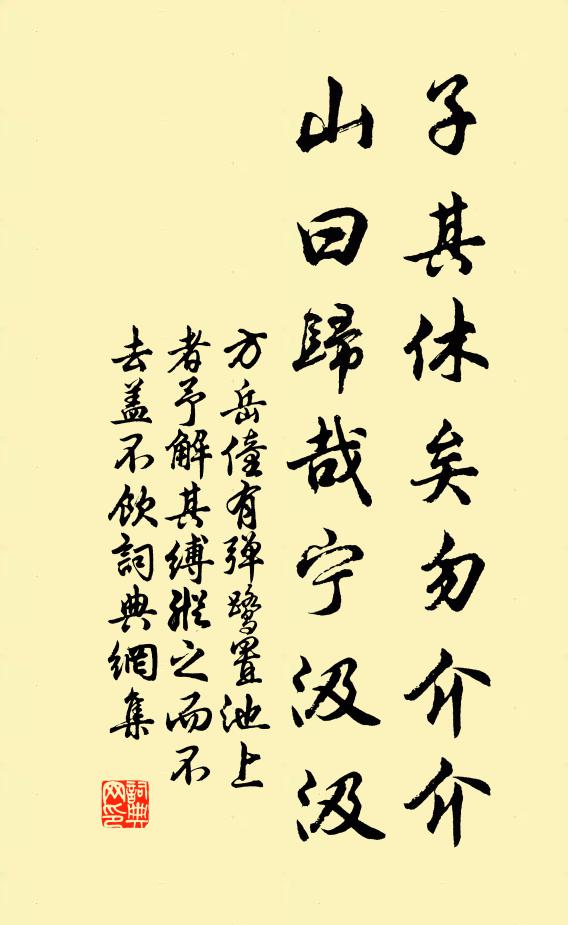 子其休矣勿介介
山曰歸哉宁汲汲
方岳僮有弹鹭置池上
者予解其缚縱之而不
去盖不飲詞典網集
詞典网印